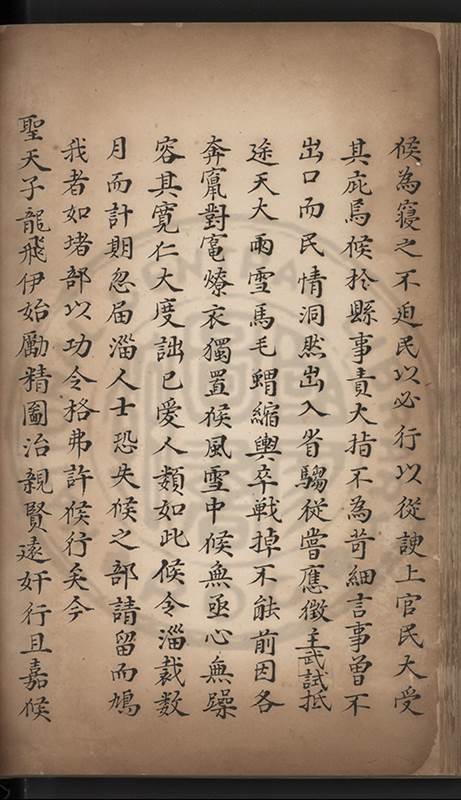 候為寢之不迫民以必行以從諛上官民大受
其庇焉候於縣事責大指不為苛細言事曾不
出口而民情洞然出入省騶從嘗應徵主武試抵
途天大雨雪馬毛蝟縮輿卒戰掉不能前因各
奔竄對窰燎衣獨置候風雪中候無亟心無躁
容其寬仁大度詘已愛人類如此候令淄裁數
月而計期忽届淄人士恐失候之部請留而鳩
我者如堵部以功令格弗許候行矣今
聖天子龍飛伊始勵精圖治親賢遠奸行且嘉候